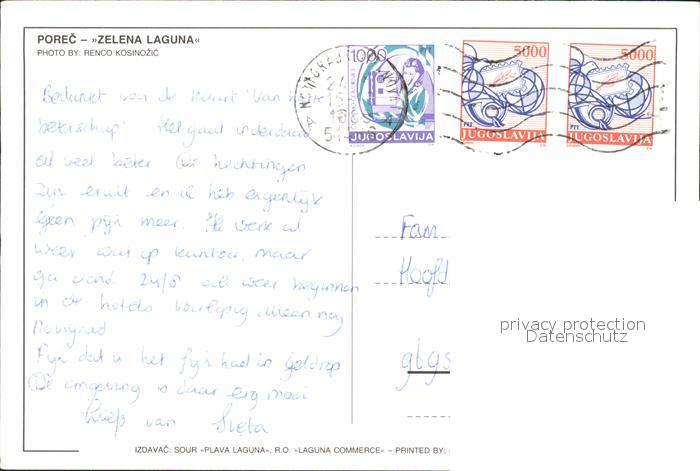 POREČ – »ZELENA LAGUNA«
PHOTO BY: RENCO KOSINOŽIĆ
1000
JUGOSLAVIJA
5000
PTT
JUGOSLAVIJA
5000
PTT
JUGOSLAVIJA
Bedankt voor de kaart van harte
beterschap. Het gaat inderdaad
al veel beter. De hechtingen
zijn eruit en ik heb eigenlijk
geen pijn meer. Ik werk al
weer wat op kantoor, maar
ga vand. 24/5 ook weer beginnen
in de hotels voorlopig alleen nog
Novigrad
Fijn dat u het fijn had in Geldrop
De omgeving is daar erg mooi
liefs van
Fam
Hoofd
privacy protection
Datenschutz
IZDAVAČ: SOUR »PLAVA LAGUNA«, R.O. »LAGUNA COMMERCE« – PRINTED BY: